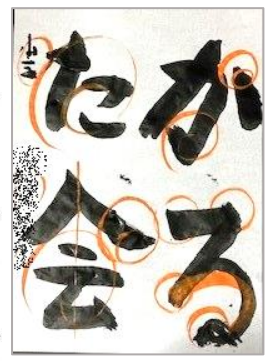 かる
た会